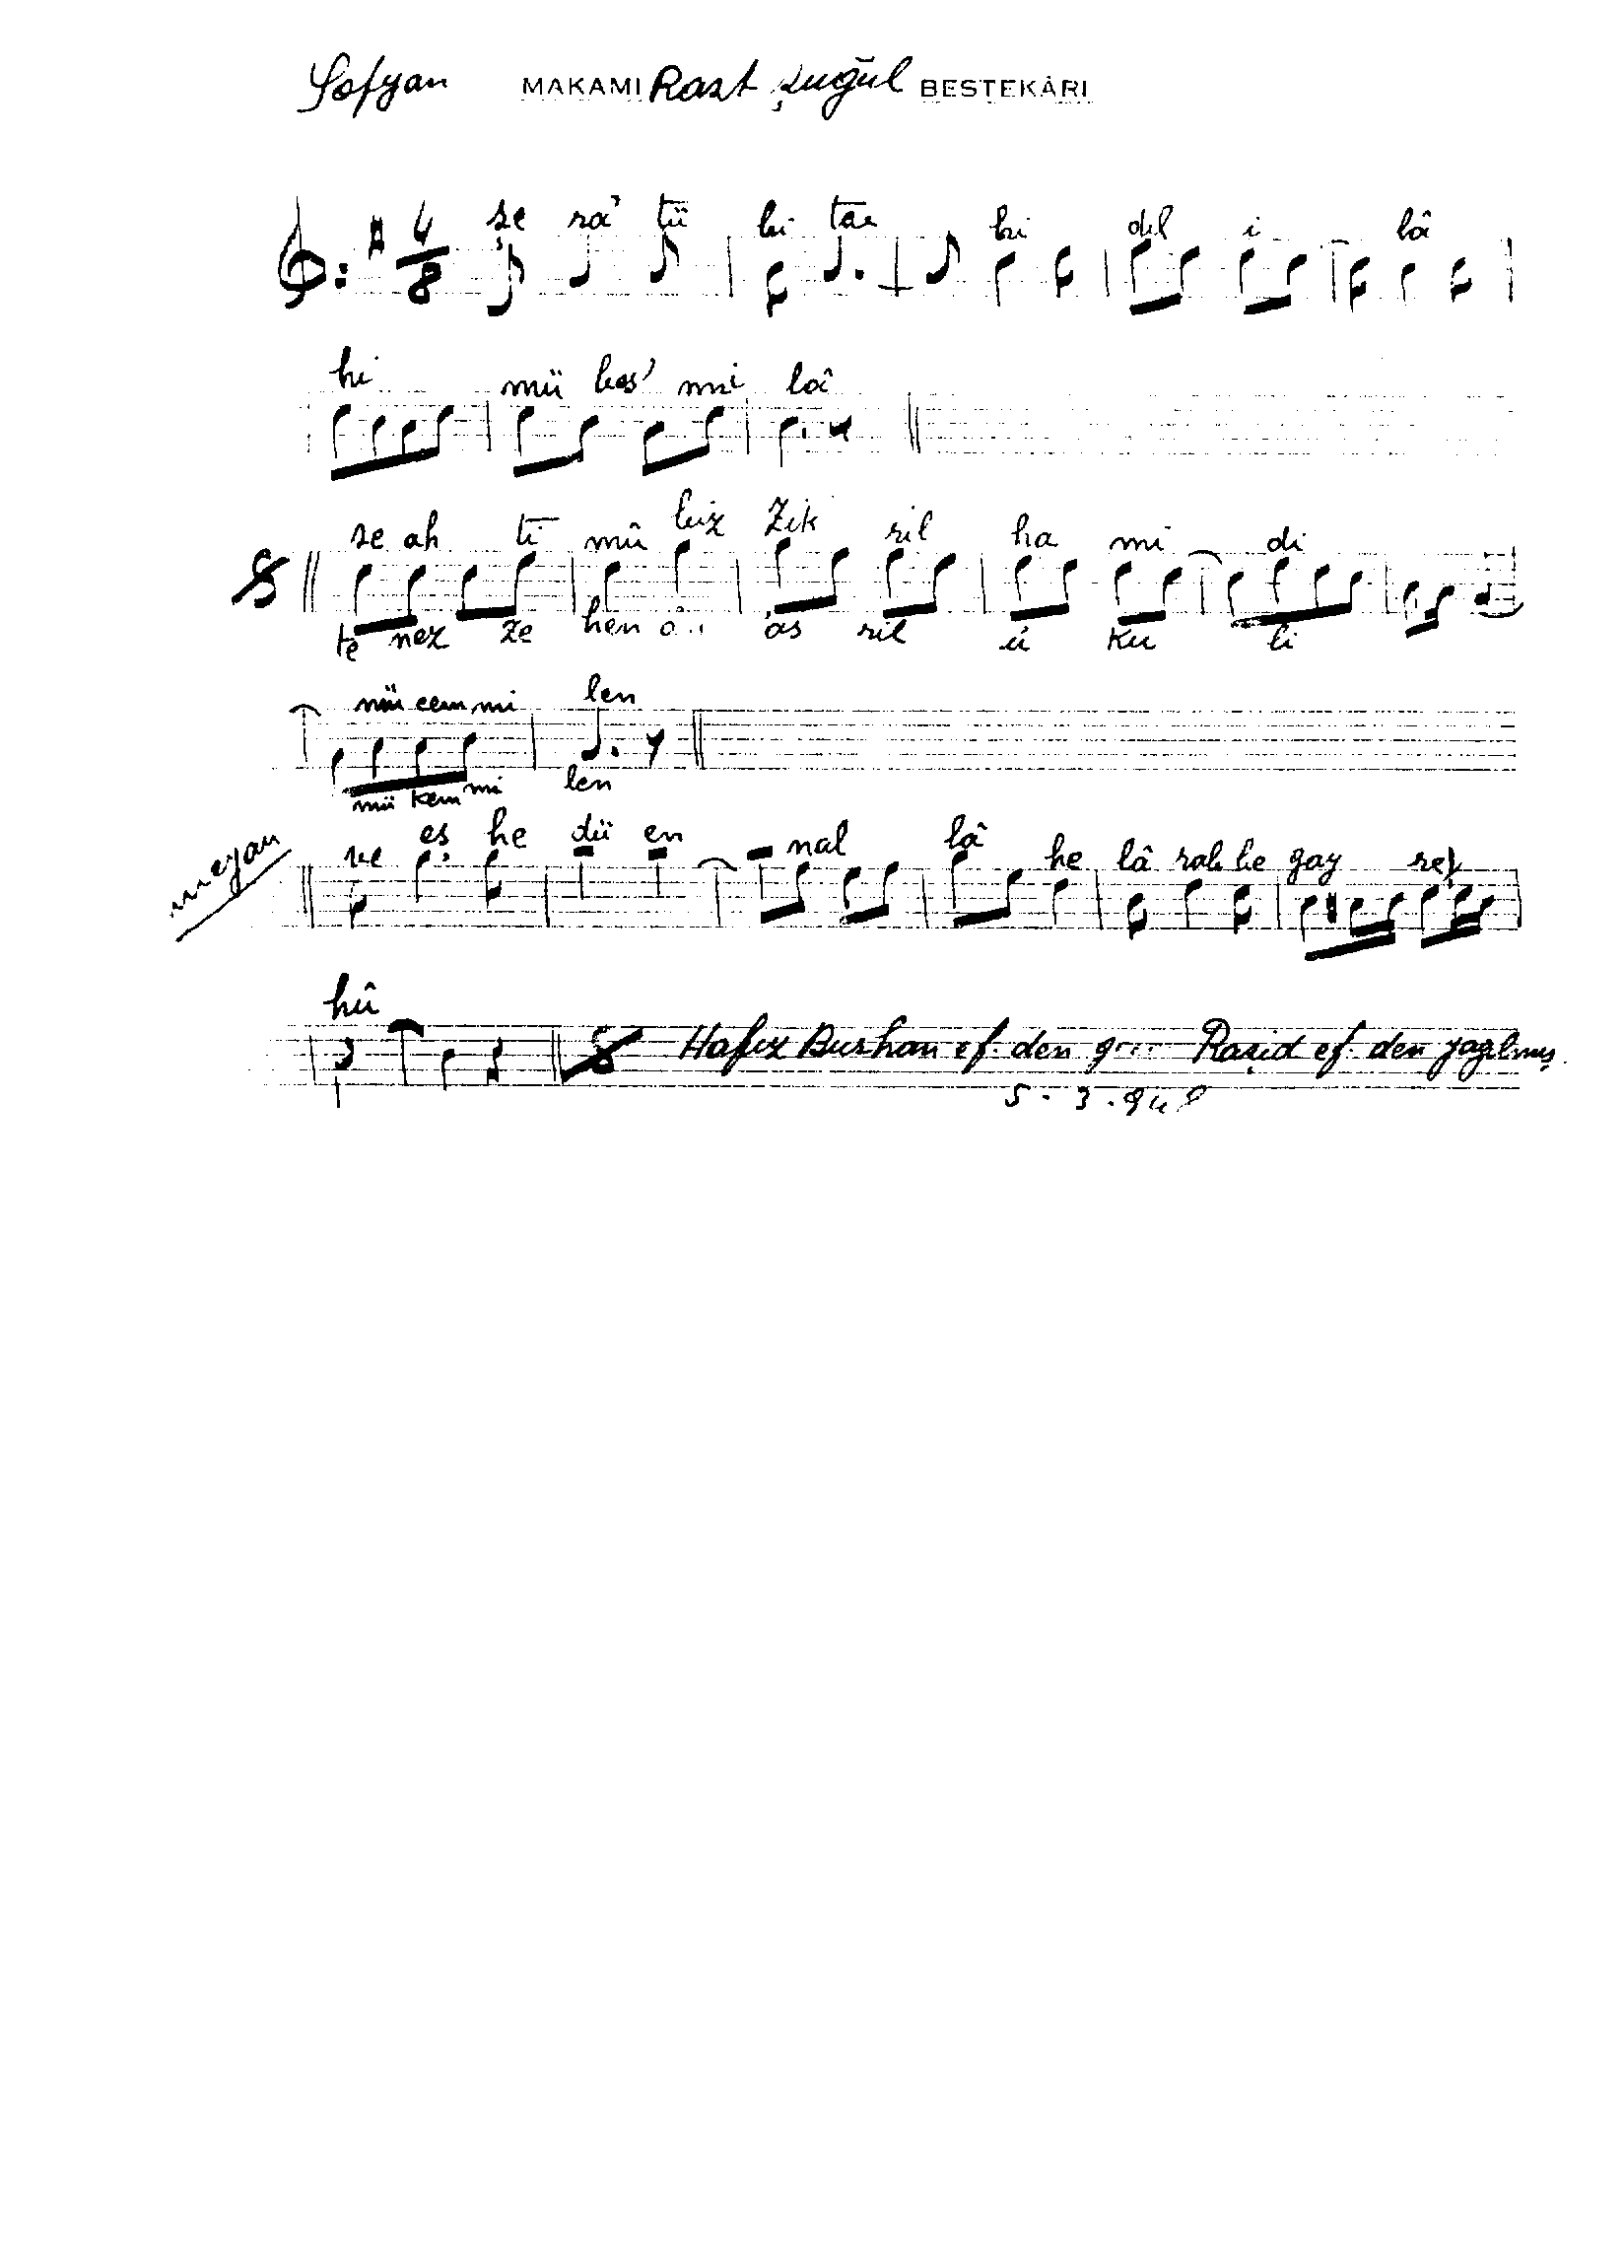 Sofyan MAKAMI Rast şuğul BESTEKÂRI
4
8
şe ra' tü bi tev bi dil i lâ
hi mü bes' mi lâ
se ah ti mû biz Zik ril ha mi di
te nez ze hen as ril ü ku li
mü cem mi len
mü kem mi len
meyan
ve eş he dü en nal lâ he lâ rab be gay rey
hû
Hafız Burhan ef. den Raşid ef. den yazılmış.
5.3.948